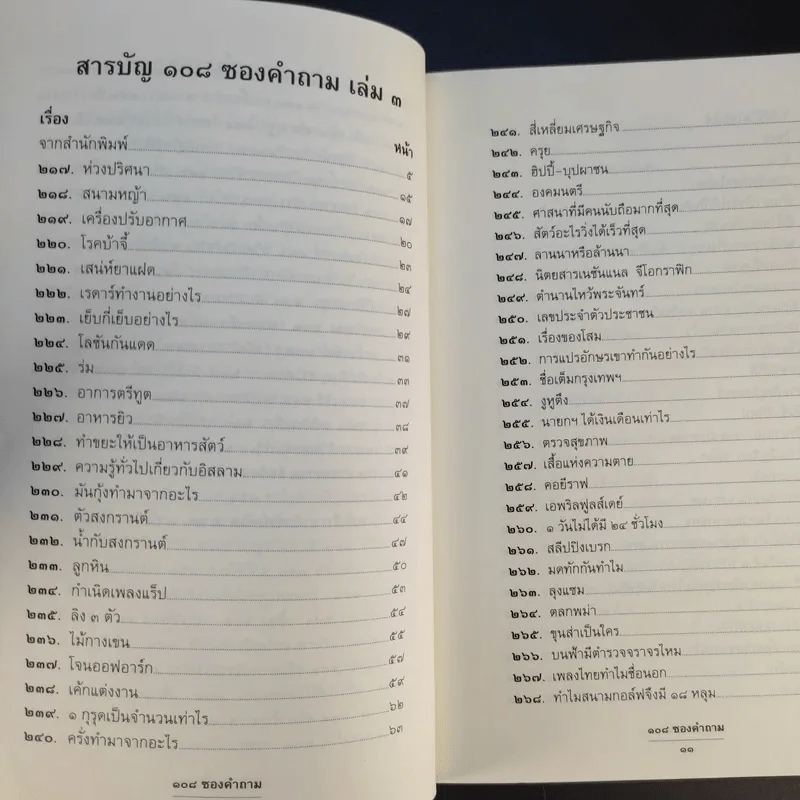 สารบัญ ๑๐๘ ซองคำถาม เล่ม ๓
เรื่อง หน้า
จากสำนักพิมพ์ ๕
๒๑๗. ห่วงปริศนา ๑๕
๒๑๘. สนามหญ้า ๑๗
๒๑๙. เครื่องปรับอากาศ ๒๐
๒๒๐. โรคบ้าจี้ ๒๓
๒๒๑. เสน่ห์ยาแฝด ๒๔
๒๒๒. เรดาร์ทำงานอย่างไร ๒๗
๒๒๓. เย็บกี่เย็บอย่างไร ๒๙
๒๒๔. โลชันกันแดด ๓๑
๒๒๕. ร่ม ๓๓
๒๒๖. อาการตรีทูต ๓๗
๒๒๗. อาหารยิว ๓๘
๒๒๘. ทำขยะให้เป็นอาหารสัตว์ ๓๙
๒๒๙. ความรู้ทั่วไปเกี่ยวกับอิสลาม ๔๑
๒๓๐. มันกุ้งทำมาจากอะไร ๔๒
๒๓๑. ตัวสงกรานต์ ๔๔
๒๓๒. น้ำกับสงกรานต์ ๔๗
๒๓๓. ลูกหิน ๕๐
๒๓๔. กำเนิดเพลงแร็ป ๕๓
๒๓๕. ลิง ๓ ตัว ๕๔
๒๓๖. ไม้กางเขน ๕๕
๒๓๗. โจนออฟอาร์ก ๕๗
๒๓๘. เค้กแต่งงาน ๕๙
๒๓๙. ๑ กุรุดเป็นจำนวนเท่าไร ๖๒
๒๔๐. ครั่งทำมาจากอะไร ๖๓
๑๐๘ ซองคำถาม
๒๔๑. สี่เหลี่ยมเศรษฐกิจ
๒๔๒. ครุย
๒๔๓. ฮิปปี้-บุปผาชน
๒๔๔. องคมนตรี
๒๔๕. ศาสนาที่มีคนนับถือมากที่สุด
๒๔๖. สัตว์อะไรวิ่งได้เร็วที่สุด
๒๔๗. ลานนาหรือล้านนา
๒๔๘. นิตยสารเนชันแนล จีโอกราฟิก
๒๔๙. ตำนานไหว้พระจันทร์
๒๕๐. เลขประจำตัวประชาชน
๒๕๑. เรื่องของโสม
๒๕๒. การแปรอักษรเขาทำกันอย่างไร
๒๕๓. ชื่อเต็มกรุงเทพฯ
๒๕๔. งูหูดึง
๒๕๕. นายกฯ ได้เงินเดือนเท่าไร
๒๕๖. ตรวจสุขภาพ
๒๕๗. เสื้อแห่งความตาย
๒๕๘. คอยีราฟ
๒๕๙. เอพริลฟูลส์เดย์
๒๖๐. ๑ วันไม่ได้มี ๒๔ ชั่วโมง
๒๖๑. สลีปปิงเบรก
๒๖๒. มดทักกันทำไม
๒๖๓. ลุงแซม
๒๖๔. ตลกพม่า
๒๖๕. ขุนส่าเป็นใคร
๒๖๖. บนฟ้ามีตำรวจจราจรไหม
๒๖๗. เพลงไทยทำไมชื่อนอก
๒๖๘. ทำไมสนามกอล์ฟจึงมี ๑๘ หลุม
๑๐๘ ซองคำถาม
๑๑